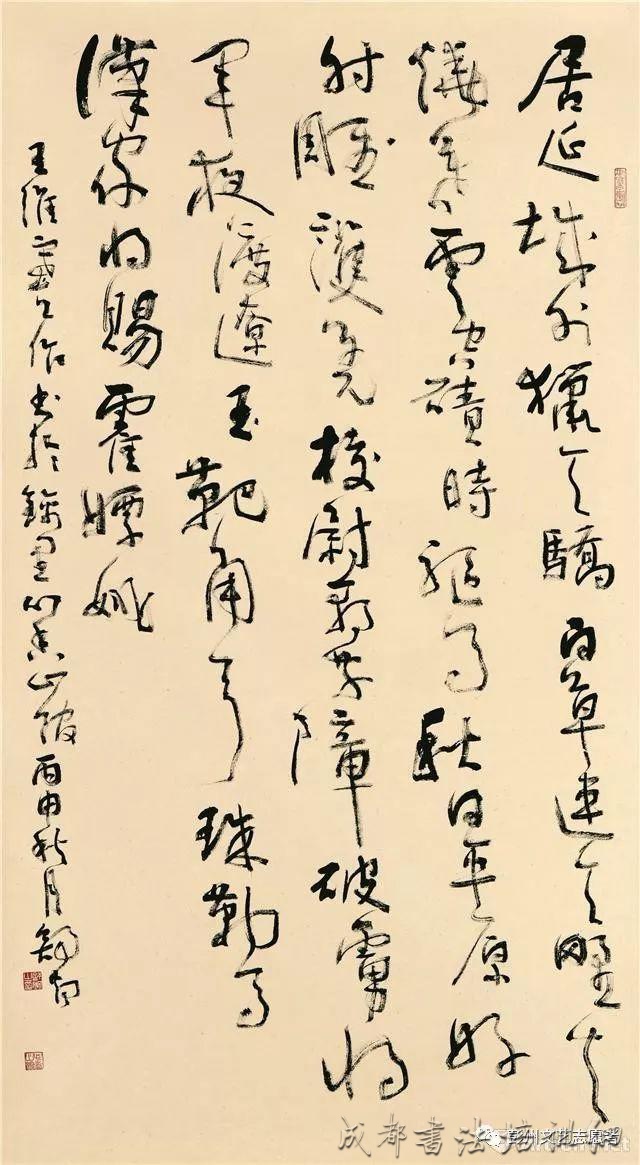 居延城外猎天驕白草連天野火
燒暮雲空磧時驅馬秋日平原好
射雕護羌校尉朝乘障破虜將
軍夜渡遼玉靶角弓珠勒馬
漢家將賜霍嫖姚
王維出塞作書於錦里心香山館丙申秋月
彭州文艺志愿者
成都書法培训